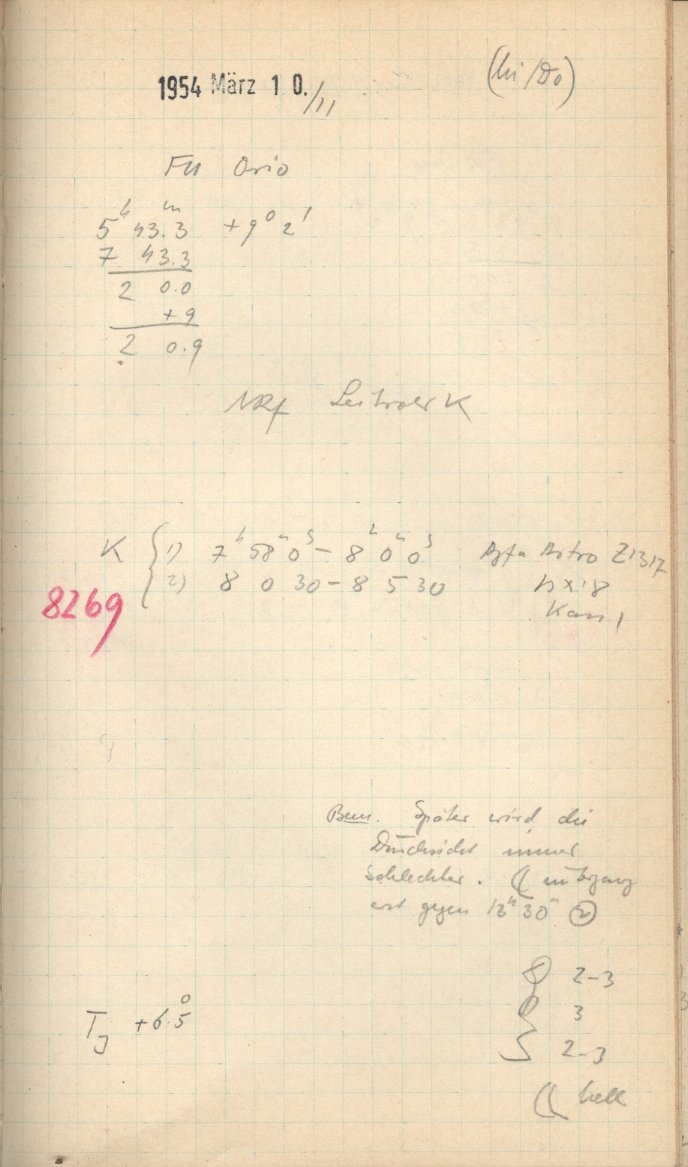 1954 März 10./11
FU Orio
5h 43.3m +9° 2'
7 43.3
2 0.0
+9
2 0.9
Leitrohr K
K { 1) 7h 58m 0s – 8h 0m 0s Agfa Astro Z1317
2) 8 0 30 – 8 5 30
8269
Kass 1
Bem. Später wird die
Durchsicht immer
schlechter. ☾ untergang
erst gegen 12h 30m
2-3
3
2-3
☾ hell
TJ +6.5°